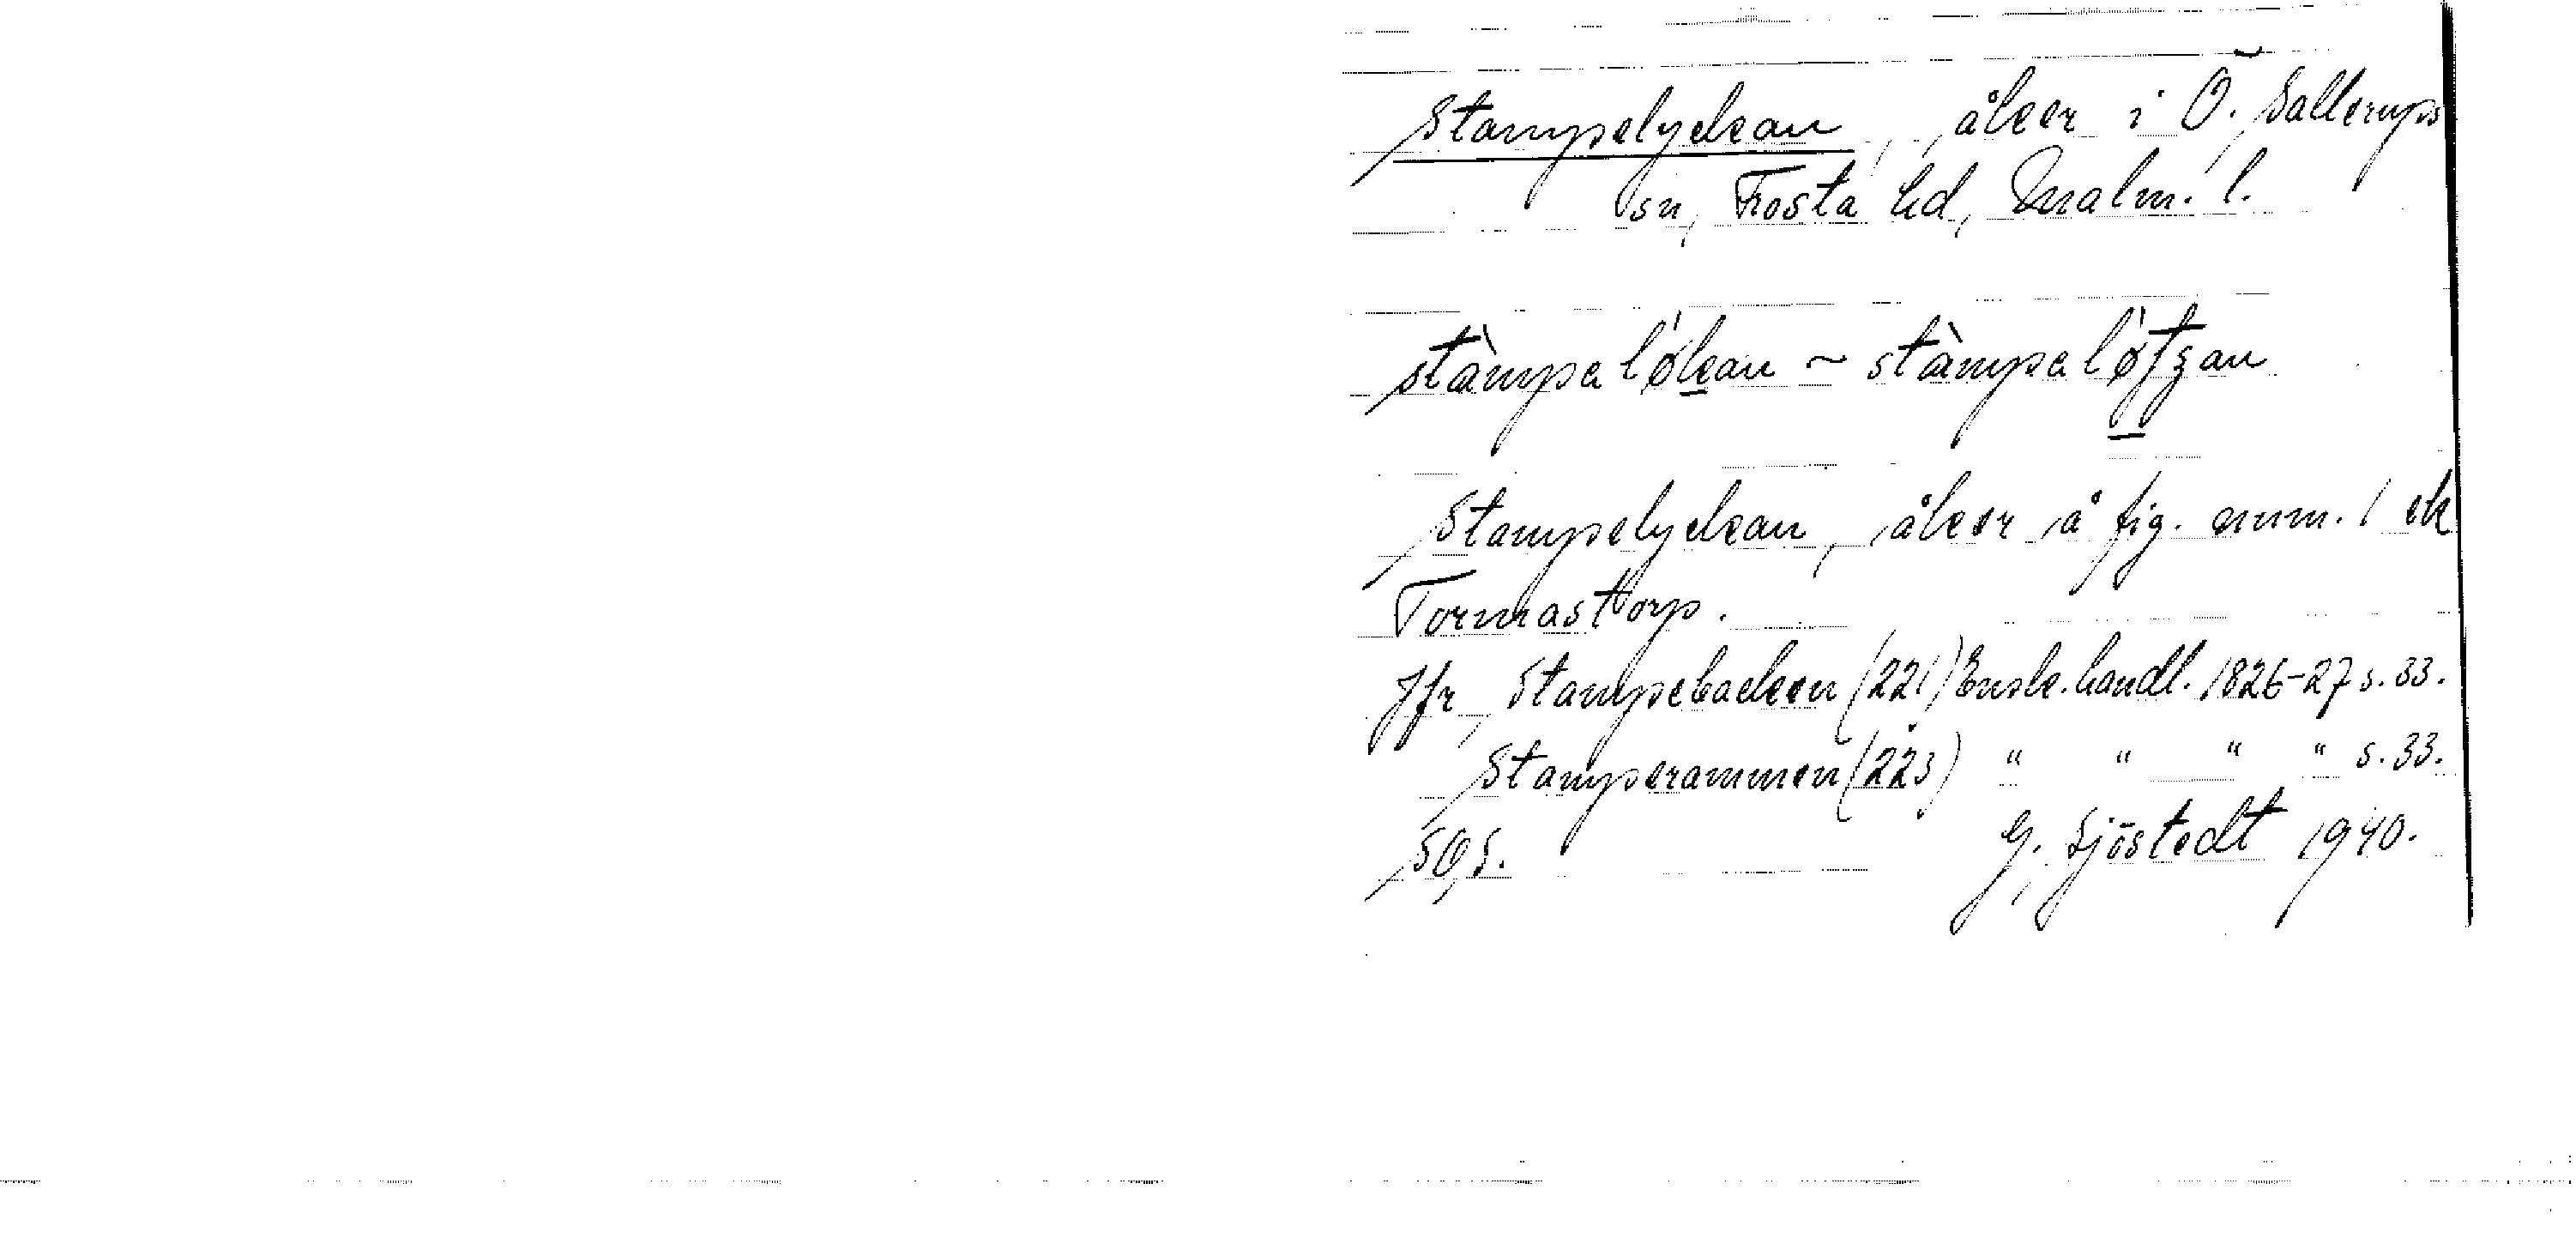 Stampelyckan, åker i Ö. Sallerups
sn, Frosta hd, Malm. l.
stàmpelø̀kan ~ stàmpelø̀tʒan
Stampelyckan, åker å fig. num. 1 ek
Tormastorp.
Jfr Stampebacken (221) Ensk. handl. 1826-27 s. 33.
Stamperammen (223) " " " " s. 33.
SOS. G. Sjöstedt 1940.